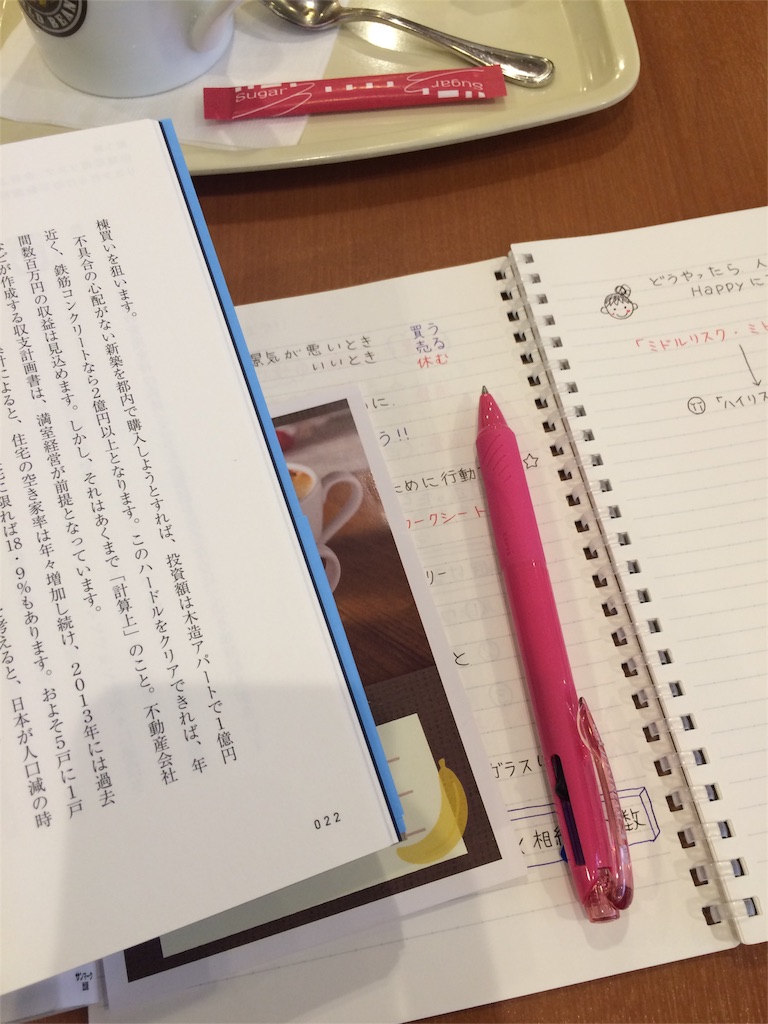 Sugar
Sugar
棟買いを狙います。
不具合の心配がない新築を都内で購入しようとすれば、投資額は木造アパートで1億円
近く、鉄筋コンクリートなら2億円以上となります。このハードルをクリアできれば、年
間数百万円の収益は見込めます。しかし、それはあくまで「計算上」のこと。不動産会社
などが作成する収支計画書は、満室経営が前提となっています。
によると、住宅の空き家率は年々増加し続け、2013年には過去
に限れば18・9%もあります。およそ5戸に1戸
考えると、日本が人口減の時
022
サンマーク
景気が悪いとき
いいとき
買う
売る
休む
に.
う!!
ために行動 ☆
ワークシート
リー
と
ガラス
く相 数
どうやったら、人
Happyに
「ミドルリスク・ミド
↓
「ハイリス